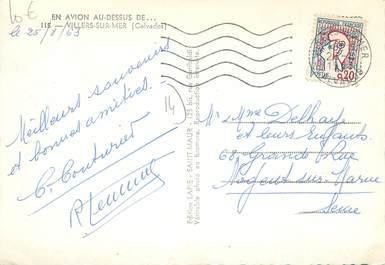 10€
EN AVION AU-DESSUS DE...
115 — VILLERS-SUR-MER (Calvados)
le 25/8/63
Meilleurs souvenirs
et bonnes amitiés.
C. Couturier
14
Edition LAPIE - SAINT-MAUR - 125 bis, rue Garibaldi
Véritable photo au bromure. Reproduction interdite
MER
POSTES
0,20
Mr & Mme Delhaye
et leurs Enfants.
68, Grande Rue
Nogent sur Marne
Seine